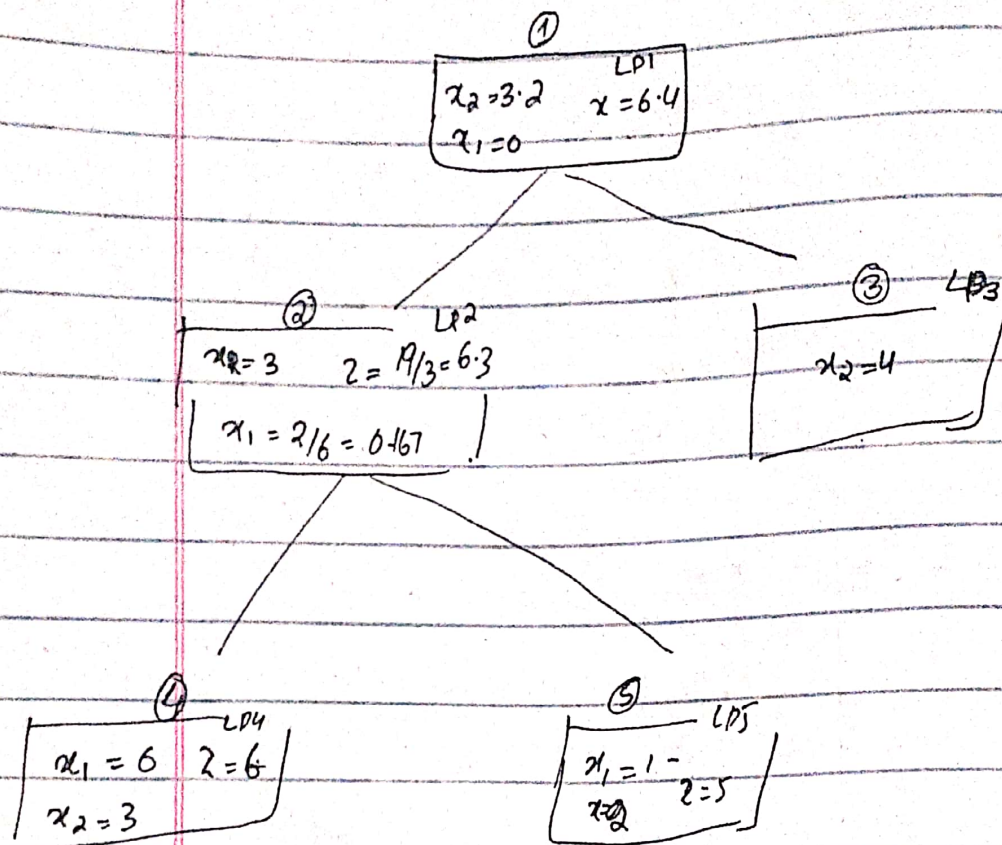 ①
LP1
x₂=3.2 x=6.4
x₁=0
② LP2
x₂=3 2=19/3=6.3
x₁=2/6=0.167
③ LP3
x₂=4
④ LP4
x₁=0 2=6
x₂=3
⑤ LP5
x₁=1 2=5